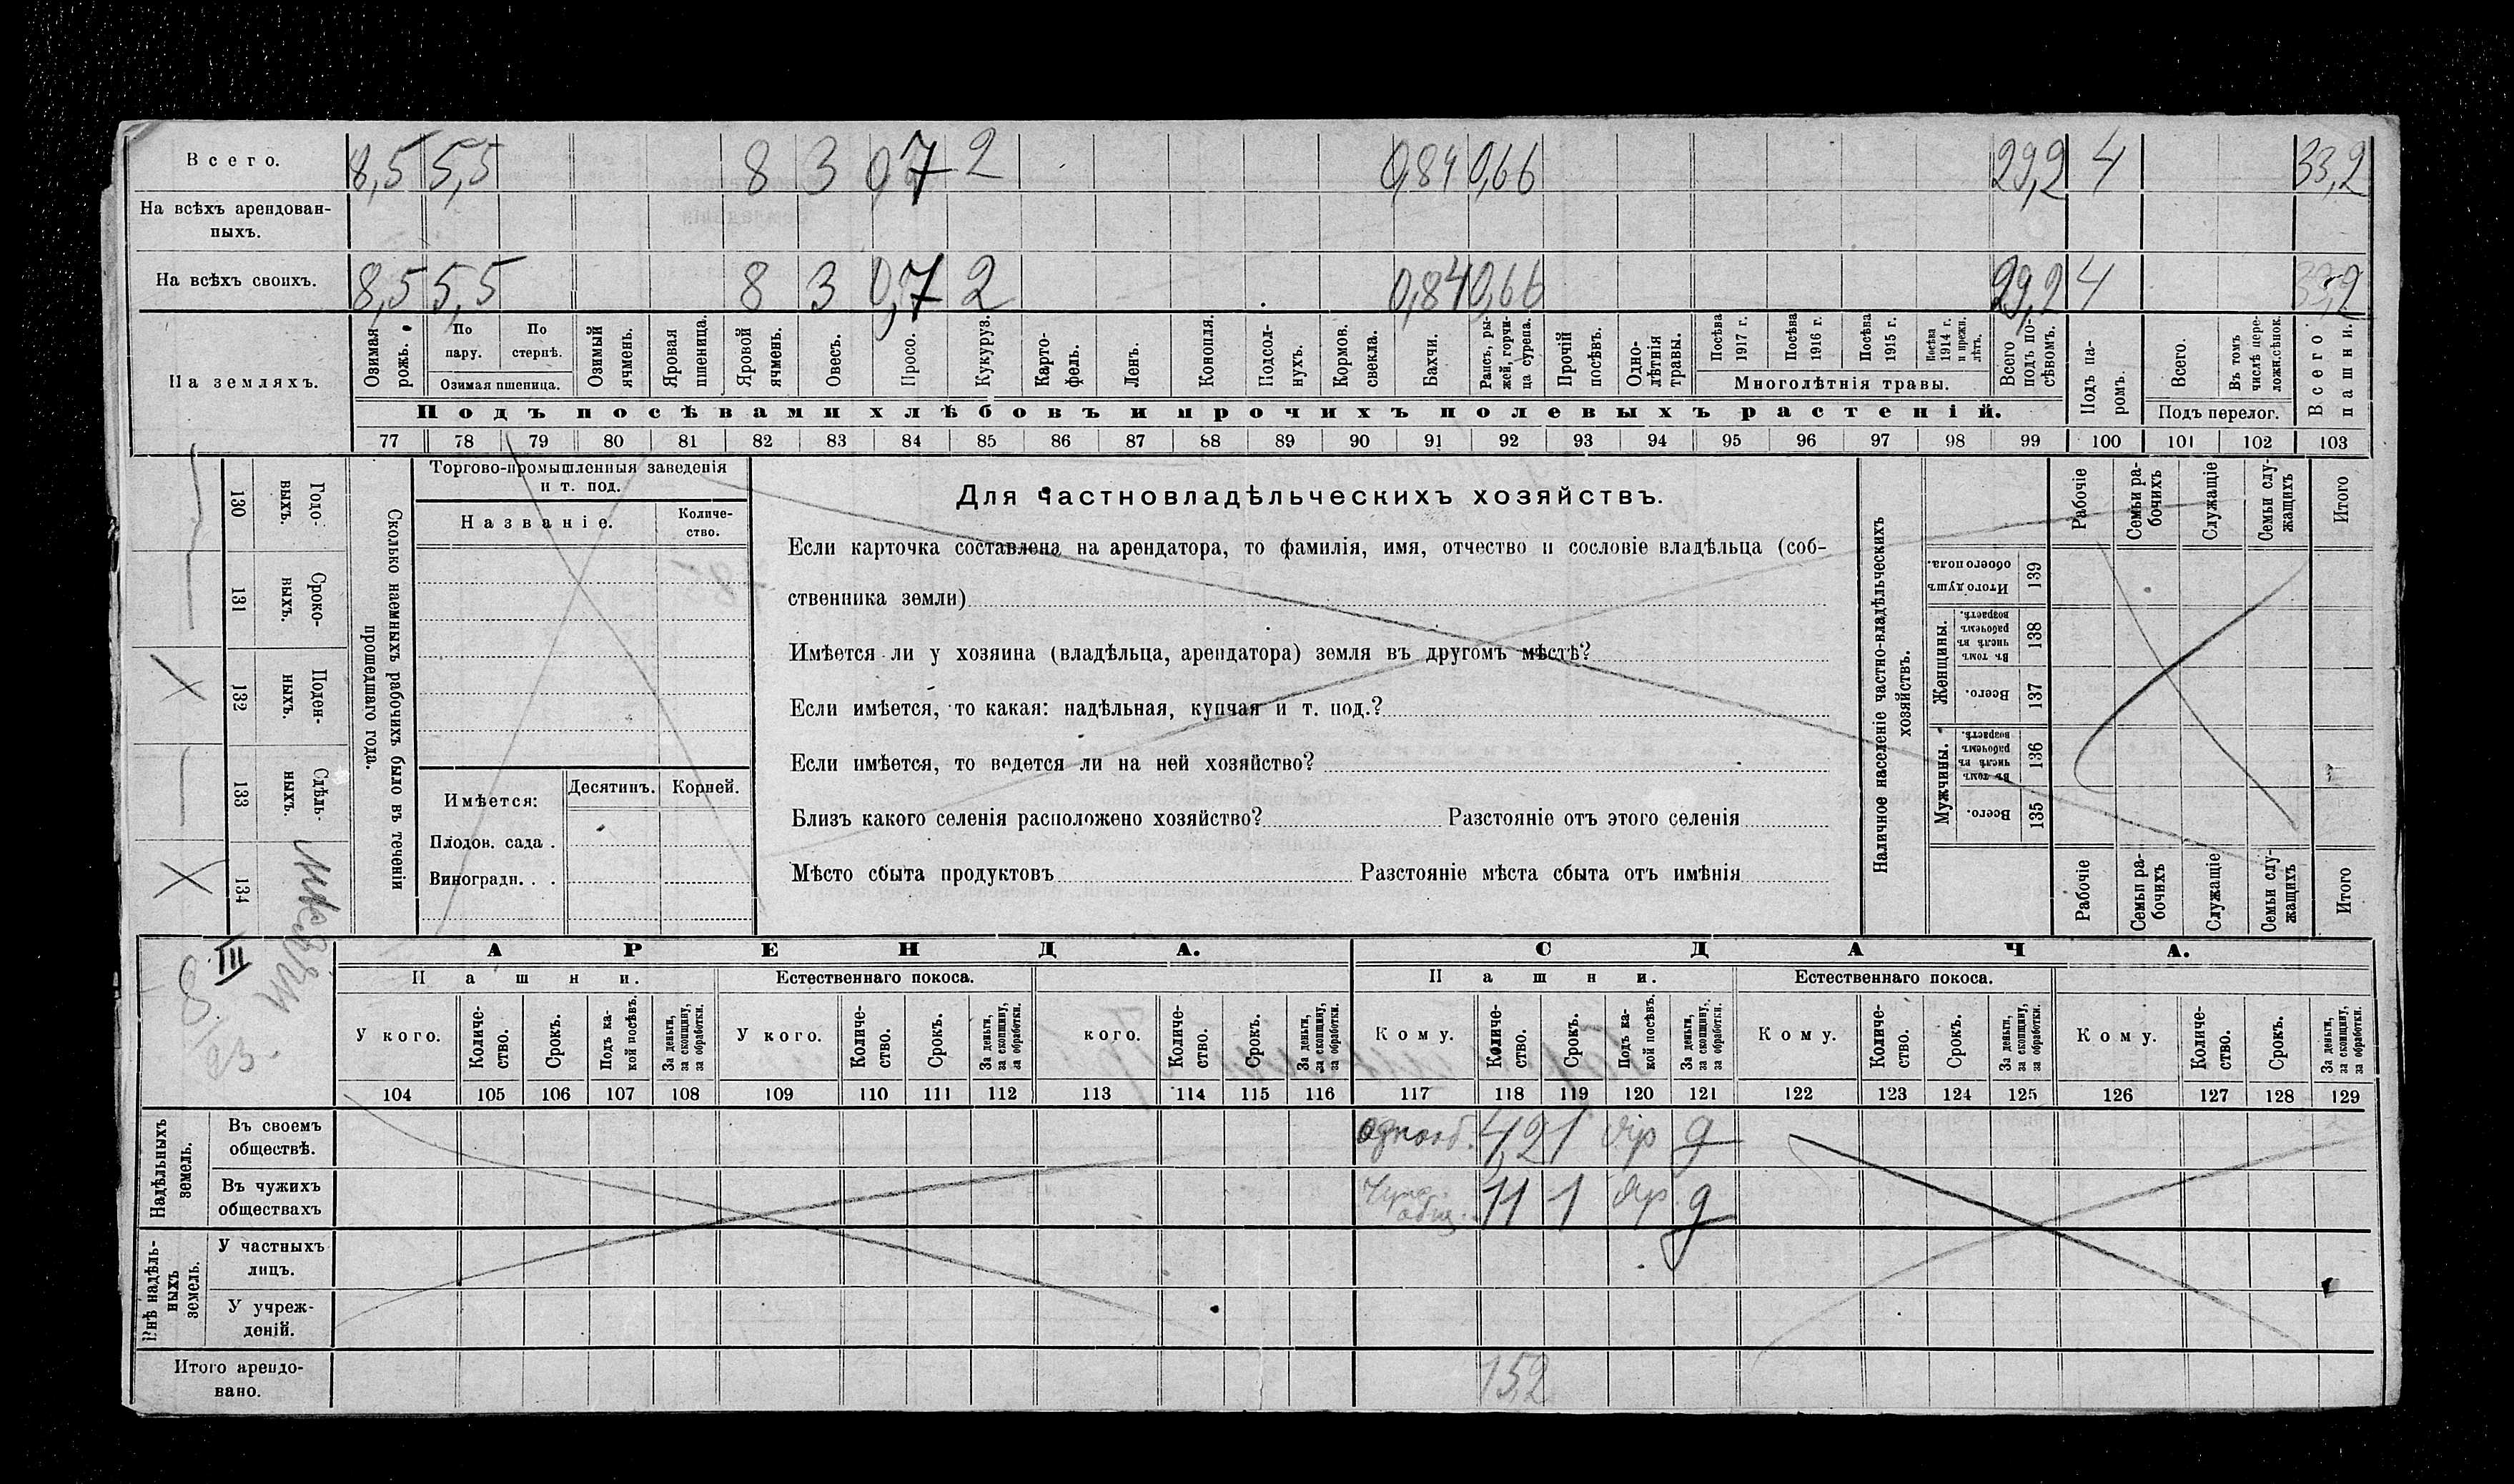 Всего. 8,5 5,5 8 3 0,7 2 0,84 0,66 29,2 4 33,2
На всѣхъ арендован-
ныхъ.
На всѣхъ своихъ. 8,5 5,5 8 3 0,7 2 0,84 0,66 29,2 4 33,2
На земляхъ.
Озимая рожь.
По пару.
По стернѣ.
Озимая пшеница.
Озимый ячмень.
Яровая пшеница.
Яровой ячмень.
Овесъ.
Просо.
Кукуруз.
Карто-
фель.
Ленъ.
Конопля.
Подсол-
нухъ.
Кормов. свекла.
Бахчи.
Рапсъ, ры-
жей, горчи-
ца сурепа.
Прочій посѣвъ.
Одно-
лѣтнія травы.
Посѣва 1917 г.
Посѣва 1916 г.
Посѣва 1915 г.
Посѣва 1914 г. и прежн. лѣтъ.
Многолѣтнія травы.
Всего подъ по-
сѣвомъ.
Подъ па-
ромъ.
Всего.
Въ томъ числѣ пере-
ложн.сѣнок.
Подъ перелог.
Всего пашни.
Подъ посѣвами хлѣбовъ и прочихъ полевыхъ растеній.
77 78 79 80 81 82 83 84 85 86 87 88 89 90 91 92 93 94 95 96 97 98 99 100 101 102 103
130 Годо-
выхъ.
131 Сроко-
выхъ.
132 Поден-
ныхъ.
133 Сдѣль-
ныхъ.
134
Сколько наемныхъ рабочихъ было въ теченіи
прошедшаго года.
Торгово-промышленныя заведенія
и т. под.
Названіе.
Количе-
ство.
Имѣется:
Десятинъ. Корней.
Плодов. сада .
Виноградн. . .
Для частновладѣльческихъ хозяйствъ.
Если карточка составлена на арендатора, то фамилія, имя, отчество и сословіе владѣльца (соб-
ственника земли)
Имѣется ли у хозяина (владѣльца, арендатора) земля въ другомъ мѣстѣ?
Если имѣется, то какая: надѣльная, купчая и т. под.?
Если имѣется, то ведется ли на ней хозяйство?
Близъ какого селенія расположено хозяйство? Разстояніе отъ этого селенія
Мѣсто сбыта продуктовъ Разстояніе мѣста сбыта отъ имѣнія
Наличное населеніе частно-владѣльческихъ
хозяйствъ.
Рабочіе
Семьи ра-
бочихъ
Служащіе
Семьи слу-
жащихъ
Итого
Итого душъ обоего пола. 139
Женщины.
Въ томъ числѣ въ рабочемъ возрастѣ. 138
Всего. 137
Мужчины.
Въ томъ числѣ въ рабочемъ возрастѣ. 136
Всего. 135
Рабочіе
Семьи ра-
бочихъ
Служащіе
Семьи слу-
жащихъ
Итого
III
АРЕНДА.
СДАЧА.
Пашни.
Естественнаго покоса.
Пашни.
Естественнаго покоса.
У кого.
Количе-
ство.
Срокъ.
Подъ ка-
кой посѣвъ.
За деньги, за скопщину, за обработки.
У кого.
Количе-
ство.
Срокъ.
За деньги, за скопщину, за обработки.
кого.
Количе-
ство.
Срокъ.
За деньги, за скопщину, за обработки.
Кому.
Количе-
ство.
Срокъ.
Подъ ка-
кой посѣвъ.
За деньги, за скопщину, за обработки.
Кому.
Количе-
ство.
Срокъ.
За деньги, за скопщину, за обработки.
Кому.
Количе-
ство.
Срокъ.
За деньги, за скопщину, за обработки.
104 105 106 107 108 109 110 111 112 113 114 115 116 117 118 119 120 121 122 123 124 125 126 127 128 129
Надѣльныхъ земель.
Въ своемъ
обществѣ.
4,2 1 д
Въ чужихъ
обществахъ
11 1 д
Внѣ надѣль-
ныхъ земель.
У частныхъ
лицъ.
У учреж-
деній.
Итого арендо-
вано.
15,2